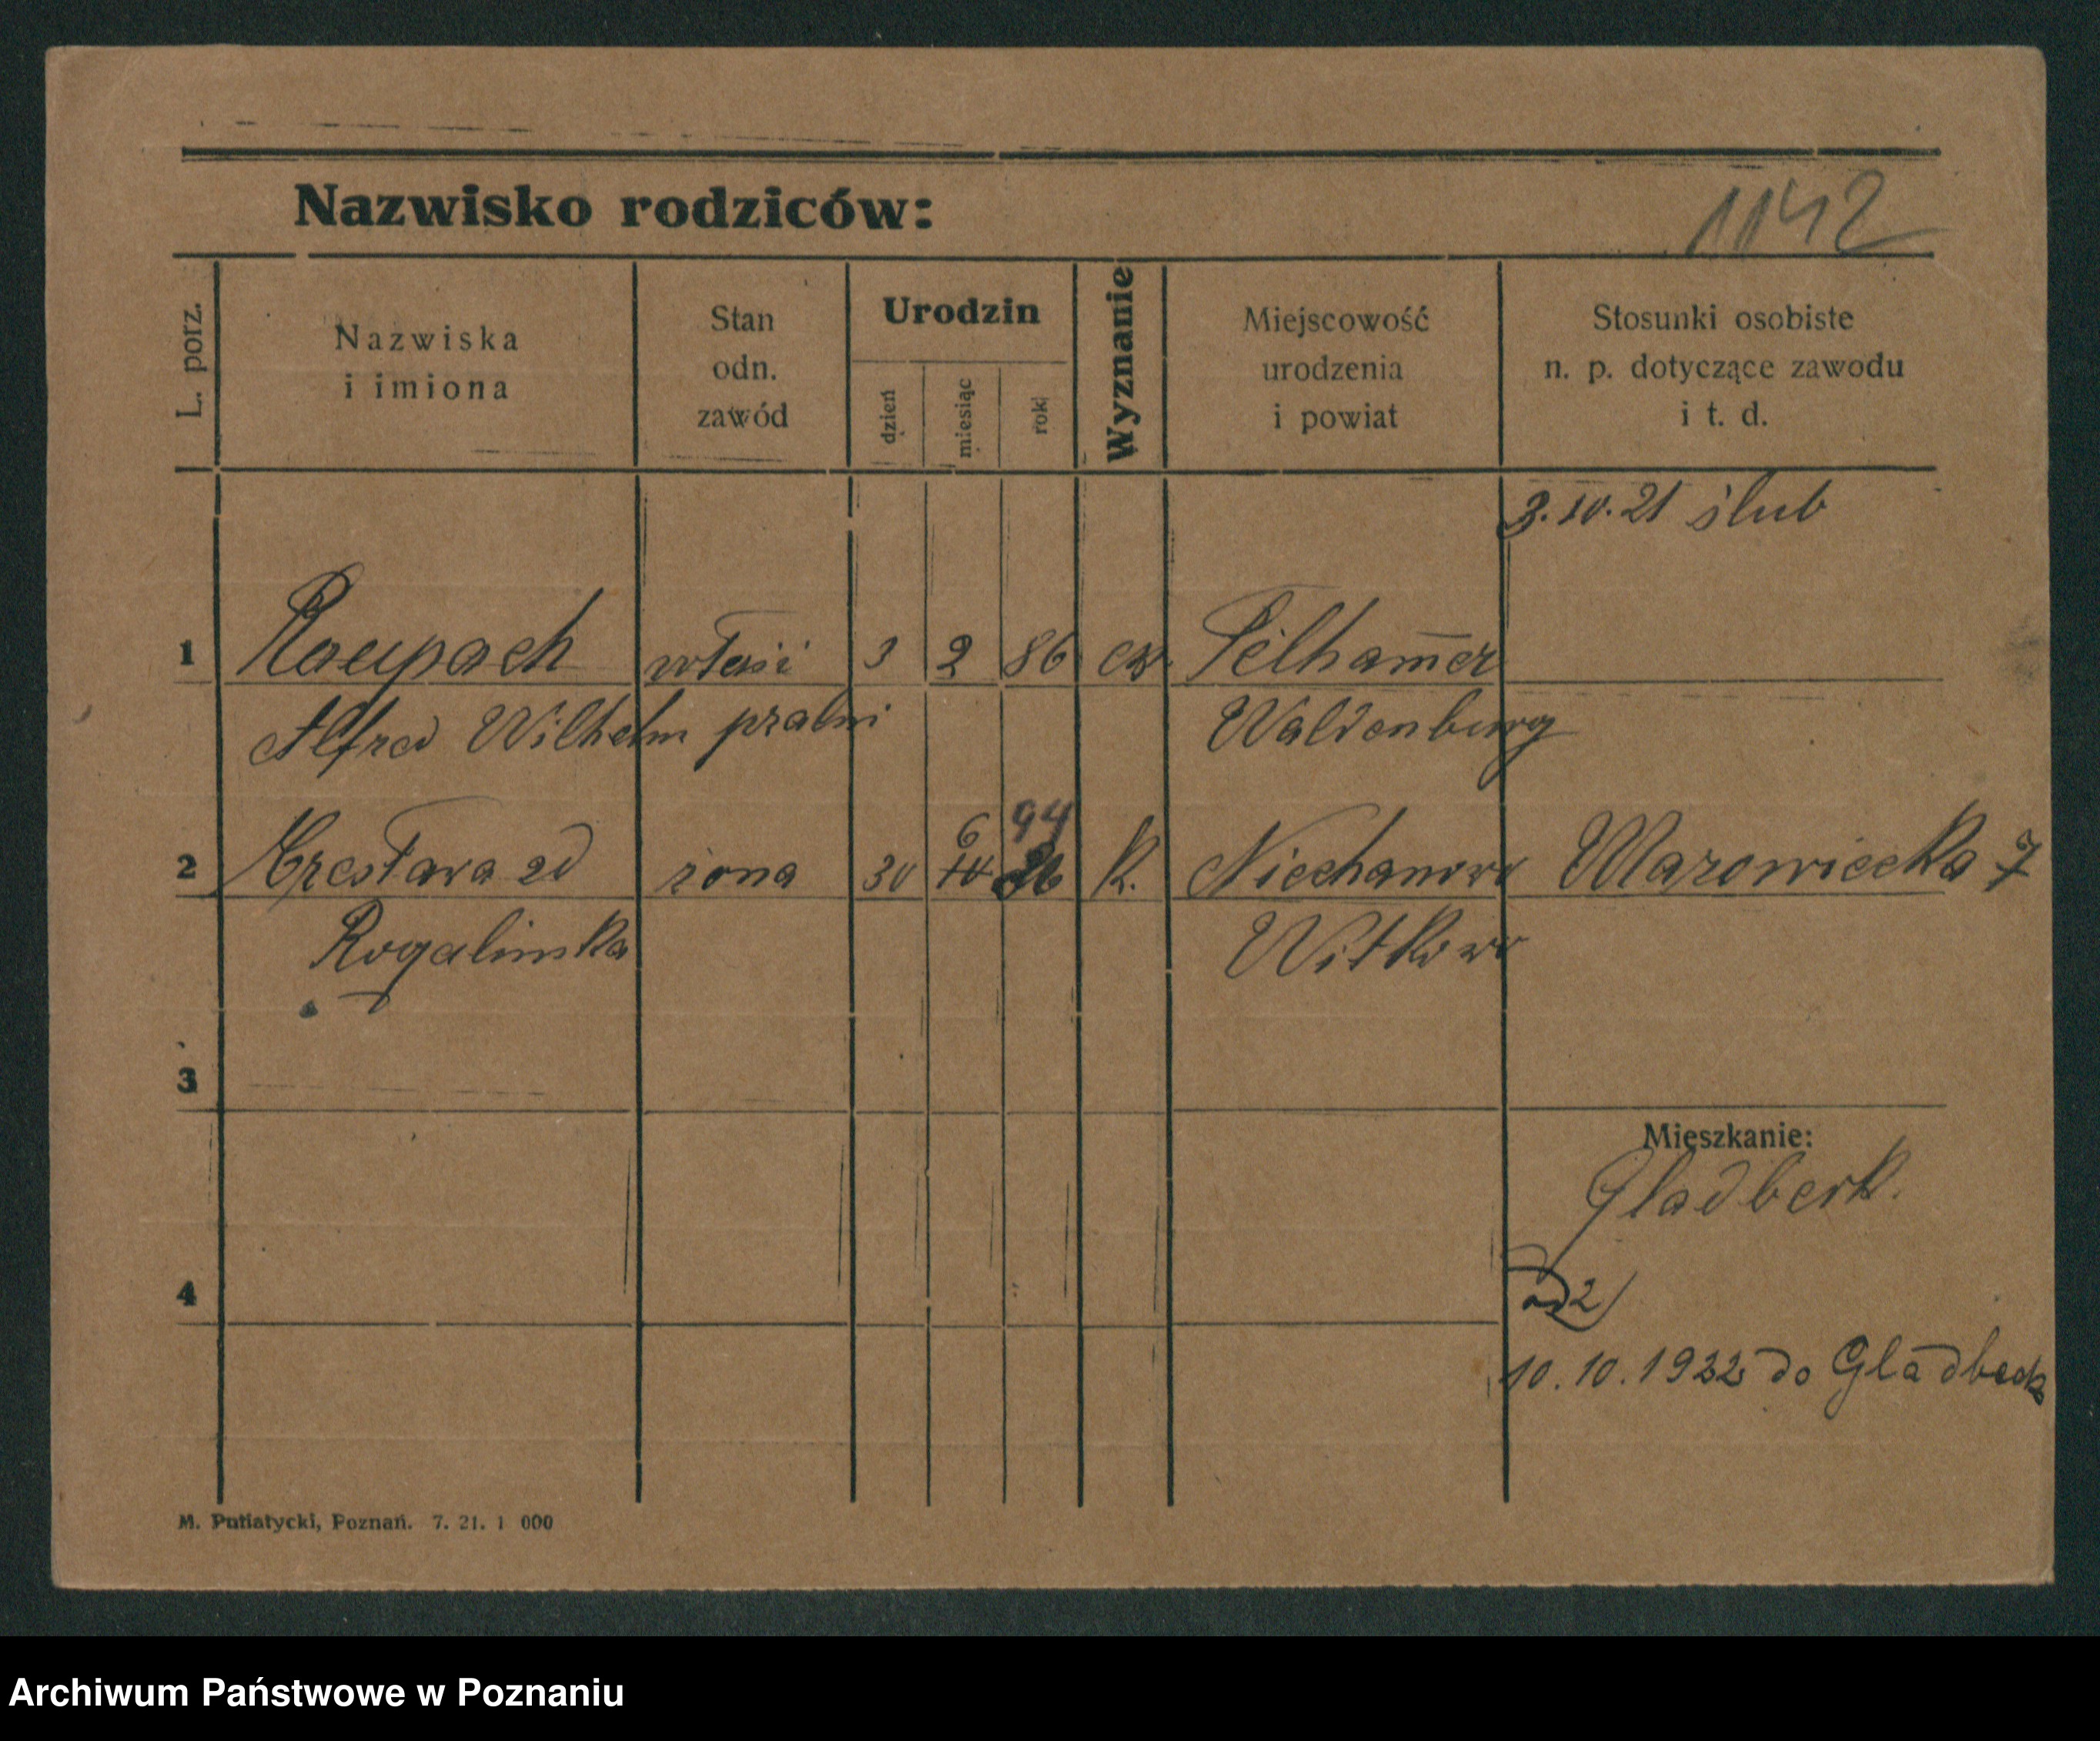 Nazwisko rodziców:
1142
L. porz.
Nazwiska
i imiona
Stan
odn.
zawód
Urodzin
dzień
miesiąc
rok
Wyznanie
Miejscowość
urodzenia
i powiat
Stosunki osobiste
n. p. dotyczące zawodu
i t. d.
3.10.21 ślub
1 Raupach właści 3 2 86 ew. Felham̄er
Alfred Wilhelm pralni Waldenburg
6 94
2 zd żona 30 10 86 k. Niechanowo Mazowiecka 7
Rogalinska Witkowo
3
Mieszkanie:
Gladbeck.
ad 2)
4
10.10.1922 do Gladbeck
M. Putiatycki, Poznań. 7. 21. 1 000
Archiwum Państwowe w Poznaniu